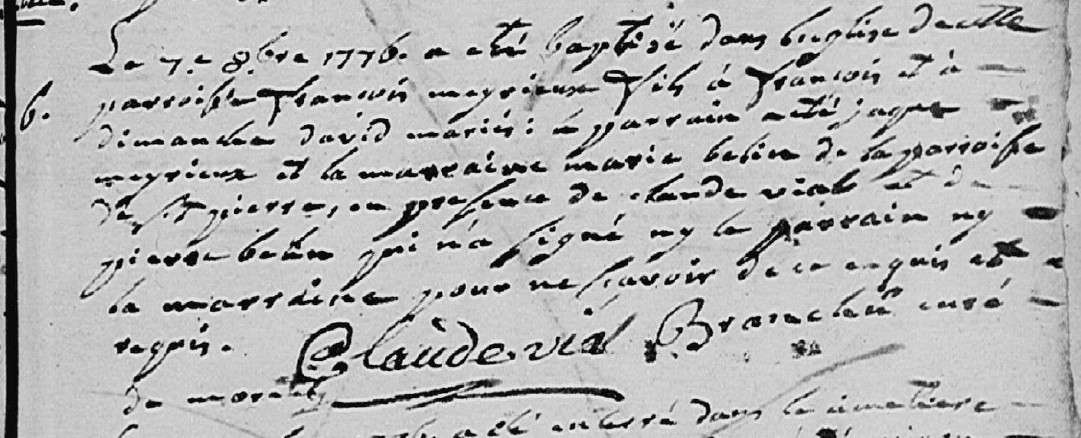 Le 7.e 8.bre 1776. a eté baptisé dans l'eglise de cette
6. parroisse françois meyrieux fils à françois et à
dimanche david mariés: le parrain a eté jaque
meyrieux et la marraine marie belin de la parroisse
de St pierre, en presence de claude vial et de
pierre belin qui n'a signé ny le parrain ny
la marraine pour ne sçavoir de ce enquis et
requis. Claude vial curé
de
a eté enterré dans le cimetiere